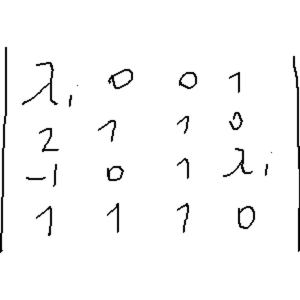 λᵢ 0 0 1
2 1 1 0
-1 0 1 λᵢ
1 1 1 0